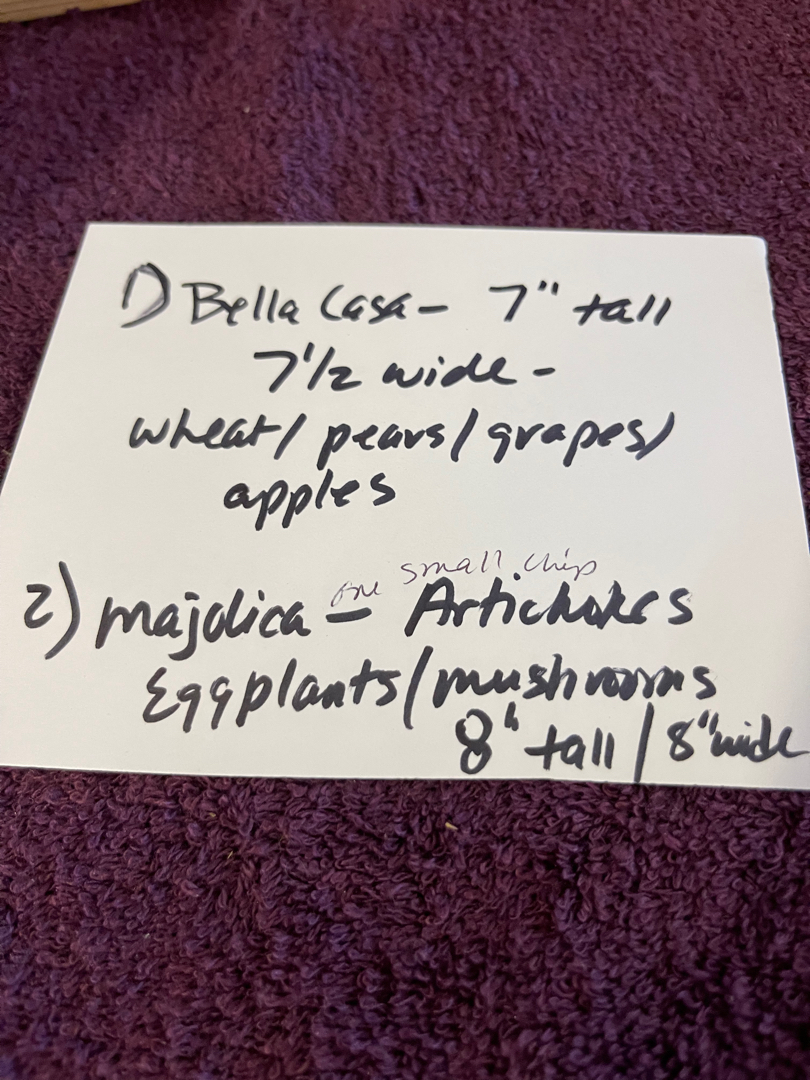 1) Bella Casa - 7" tall
7 1/2 wide -
wheat / pears / grapes /
apples
one small chip
2) majolica - Artichokes
Eggplants / mushrooms
8" tall / 8" wide